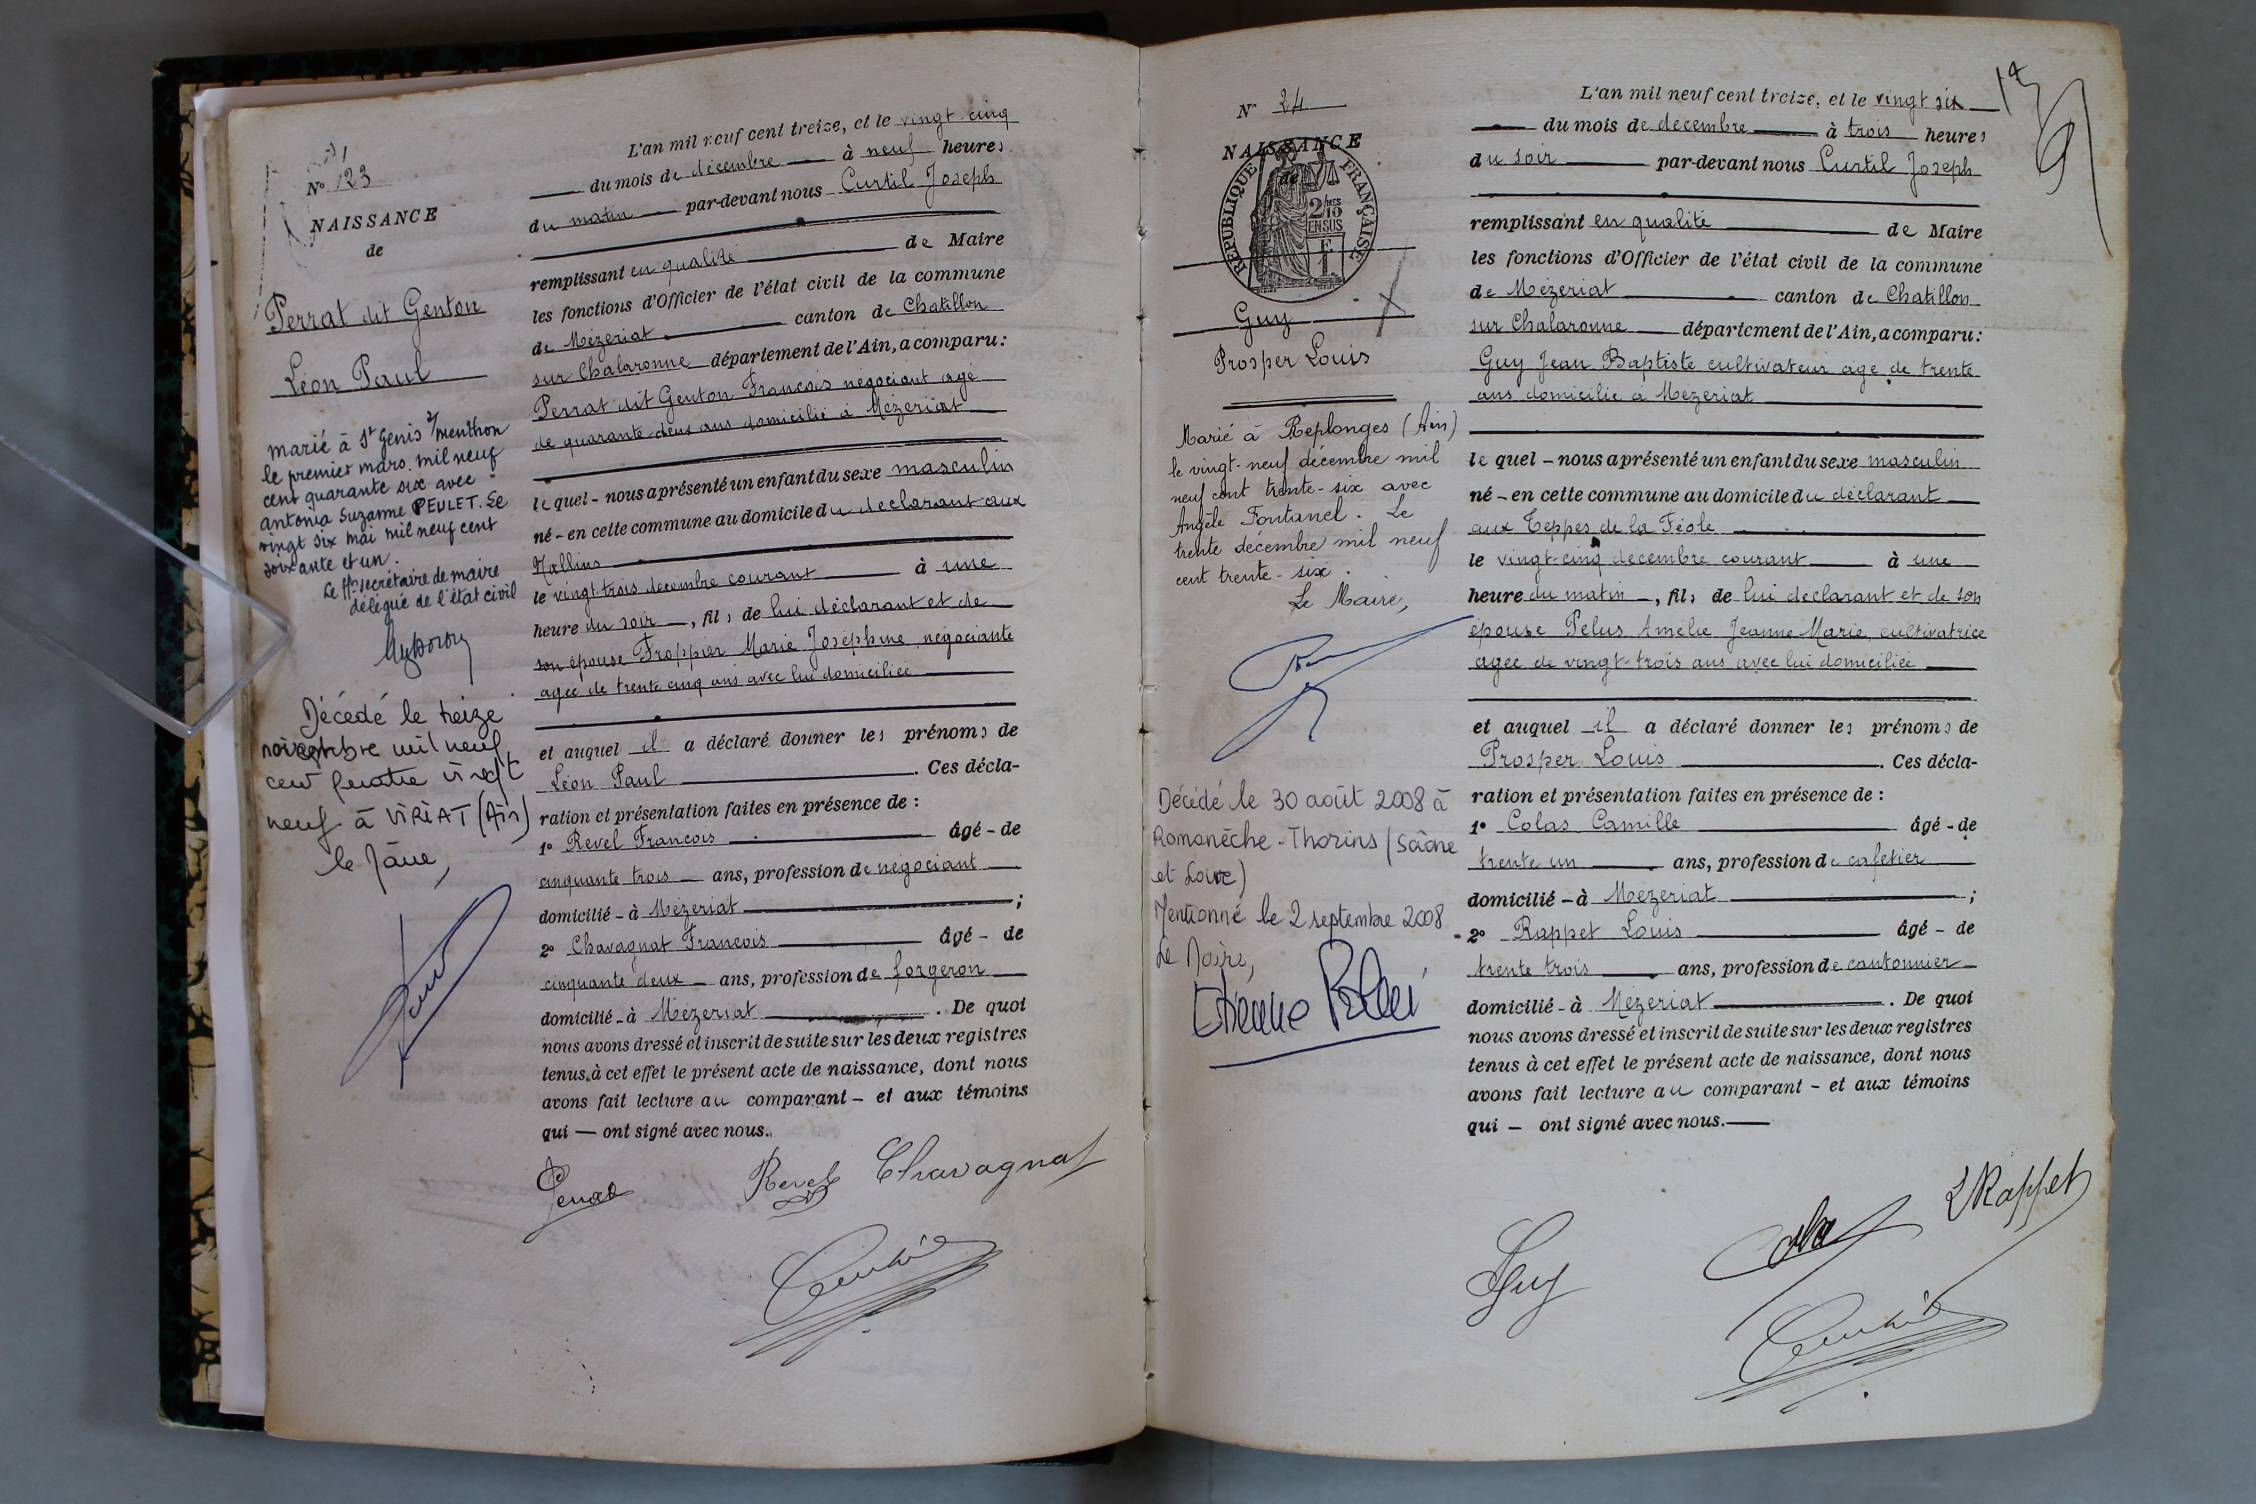 N° 23
NAISSANCE
de
Perrat dit Genton
Léon Paul
marié à St Genis s/menthon
le premier mars mil neuf
cent quarante six avec
antonia Suzanne PEULET. Le
vingt six mai mil neuf cent
soixante et un.
Le secrétaire de mairie
délégué de l'état civil
Décédé le treize
novembre mil neuf
cent quatre vingt
neuf à VIRIAT (Ain)
le Maire,
L'an mil neuf cent treize, et le vingt cinq
du mois de décembre à neuf heures
du matin par-devant nous Curtil Joseph
remplissant en qualité de Maire
les fonctions d'Officier de l'état civil de la commune
de Mézériat canton de Chatillon
sur Chalaronne département de l'Ain, a comparu:
Perrat dit Genton François négociant agé
de quarante deux ans domicilié à Mézériat
le quel - nous a présenté un enfant du sexe masculin
né - en cette commune au domicile du déclarant aux
le vingt-trois décembre courant à une
heure du soir, fils de lui déclarant et de
son épouse Froppier Marie Joséphine négociante
agée de trente cinq ans avec lui domiciliée
et auquel il a déclaré donner les prénoms de
Léon Paul. Ces décla-
ration et présentation faites en présence de :
1° Revel François âgé - de
cinquante trois ans, profession de négociant
domicilié - à Mézériat ;
2° Chavagnat François âgé - de
cinquante deux ans, profession de forgeron
domicilié - à Mézériat. De quoi
nous avons dressé et inscrit de suite sur les deux registres
tenus à cet effet le présent acte de naissance, dont nous
avons fait lecture au comparant - et aux témoins
qui — ont signé avec nous.
Perrat Revel Chavagnat
Curtil
N° 24
NAISSANCE
de
RÉPUBLIQUE FRANÇAISE
2/10
EN SUS
Guy
Prosper Louis
Marié à Replonges (Ain)
le vingt-neuf décembre mil
neuf cent trente-six avec
Angèle Fontanel. Le
trente décembre mil neuf
cent trente-six.
Le Maire,
Décédé le 30 août 2008 à
Romanèche-Thorins (Saône
et Loire)
Mentionné le 2 septembre 2008
Le Maire,
Etienne
L'an mil neuf cent treize, et le vingt six
du mois de décembre à trois heures
du soir par-devant nous Curtil Joseph
remplissant en qualité de Maire
les fonctions d'Officier de l'état civil de la commune
de Mézériat canton de Chatillon
sur Chalaronne département de l'Ain, a comparu:
Guy Jean Baptiste cultivateur agé de trente
ans domicilié à Mézériat
le quel - nous a présenté un enfant du sexe masculin
né - en cette commune au domicile du déclarant
aux Teppes de la Féole
le vingt-cinq décembre courant à une
heure du matin, fils de lui déclarant et de son
épouse Pelus Amélie Jeanne Marie cultivatrice
agée de vingt-trois ans avec lui domiciliée
et auquel il a déclaré donner les prénoms de
Prosper Louis. Ces décla-
ration et présentation faites en présence de :
1° Colas Camille âgé - de
trente un ans, profession de cafetier
domicilié - à Mézériat ;
2° Rappet Louis âgé - de
trente trois ans, profession de cantonnier
domicilié - à Mézériat. De quoi
nous avons dressé et inscrit de suite sur les deux registres
tenus à cet effet le présent acte de naissance, dont nous
avons fait lecture au comparant - et aux témoins
qui - ont signé avec nous.
Guy Colas L Rappet
Curtil